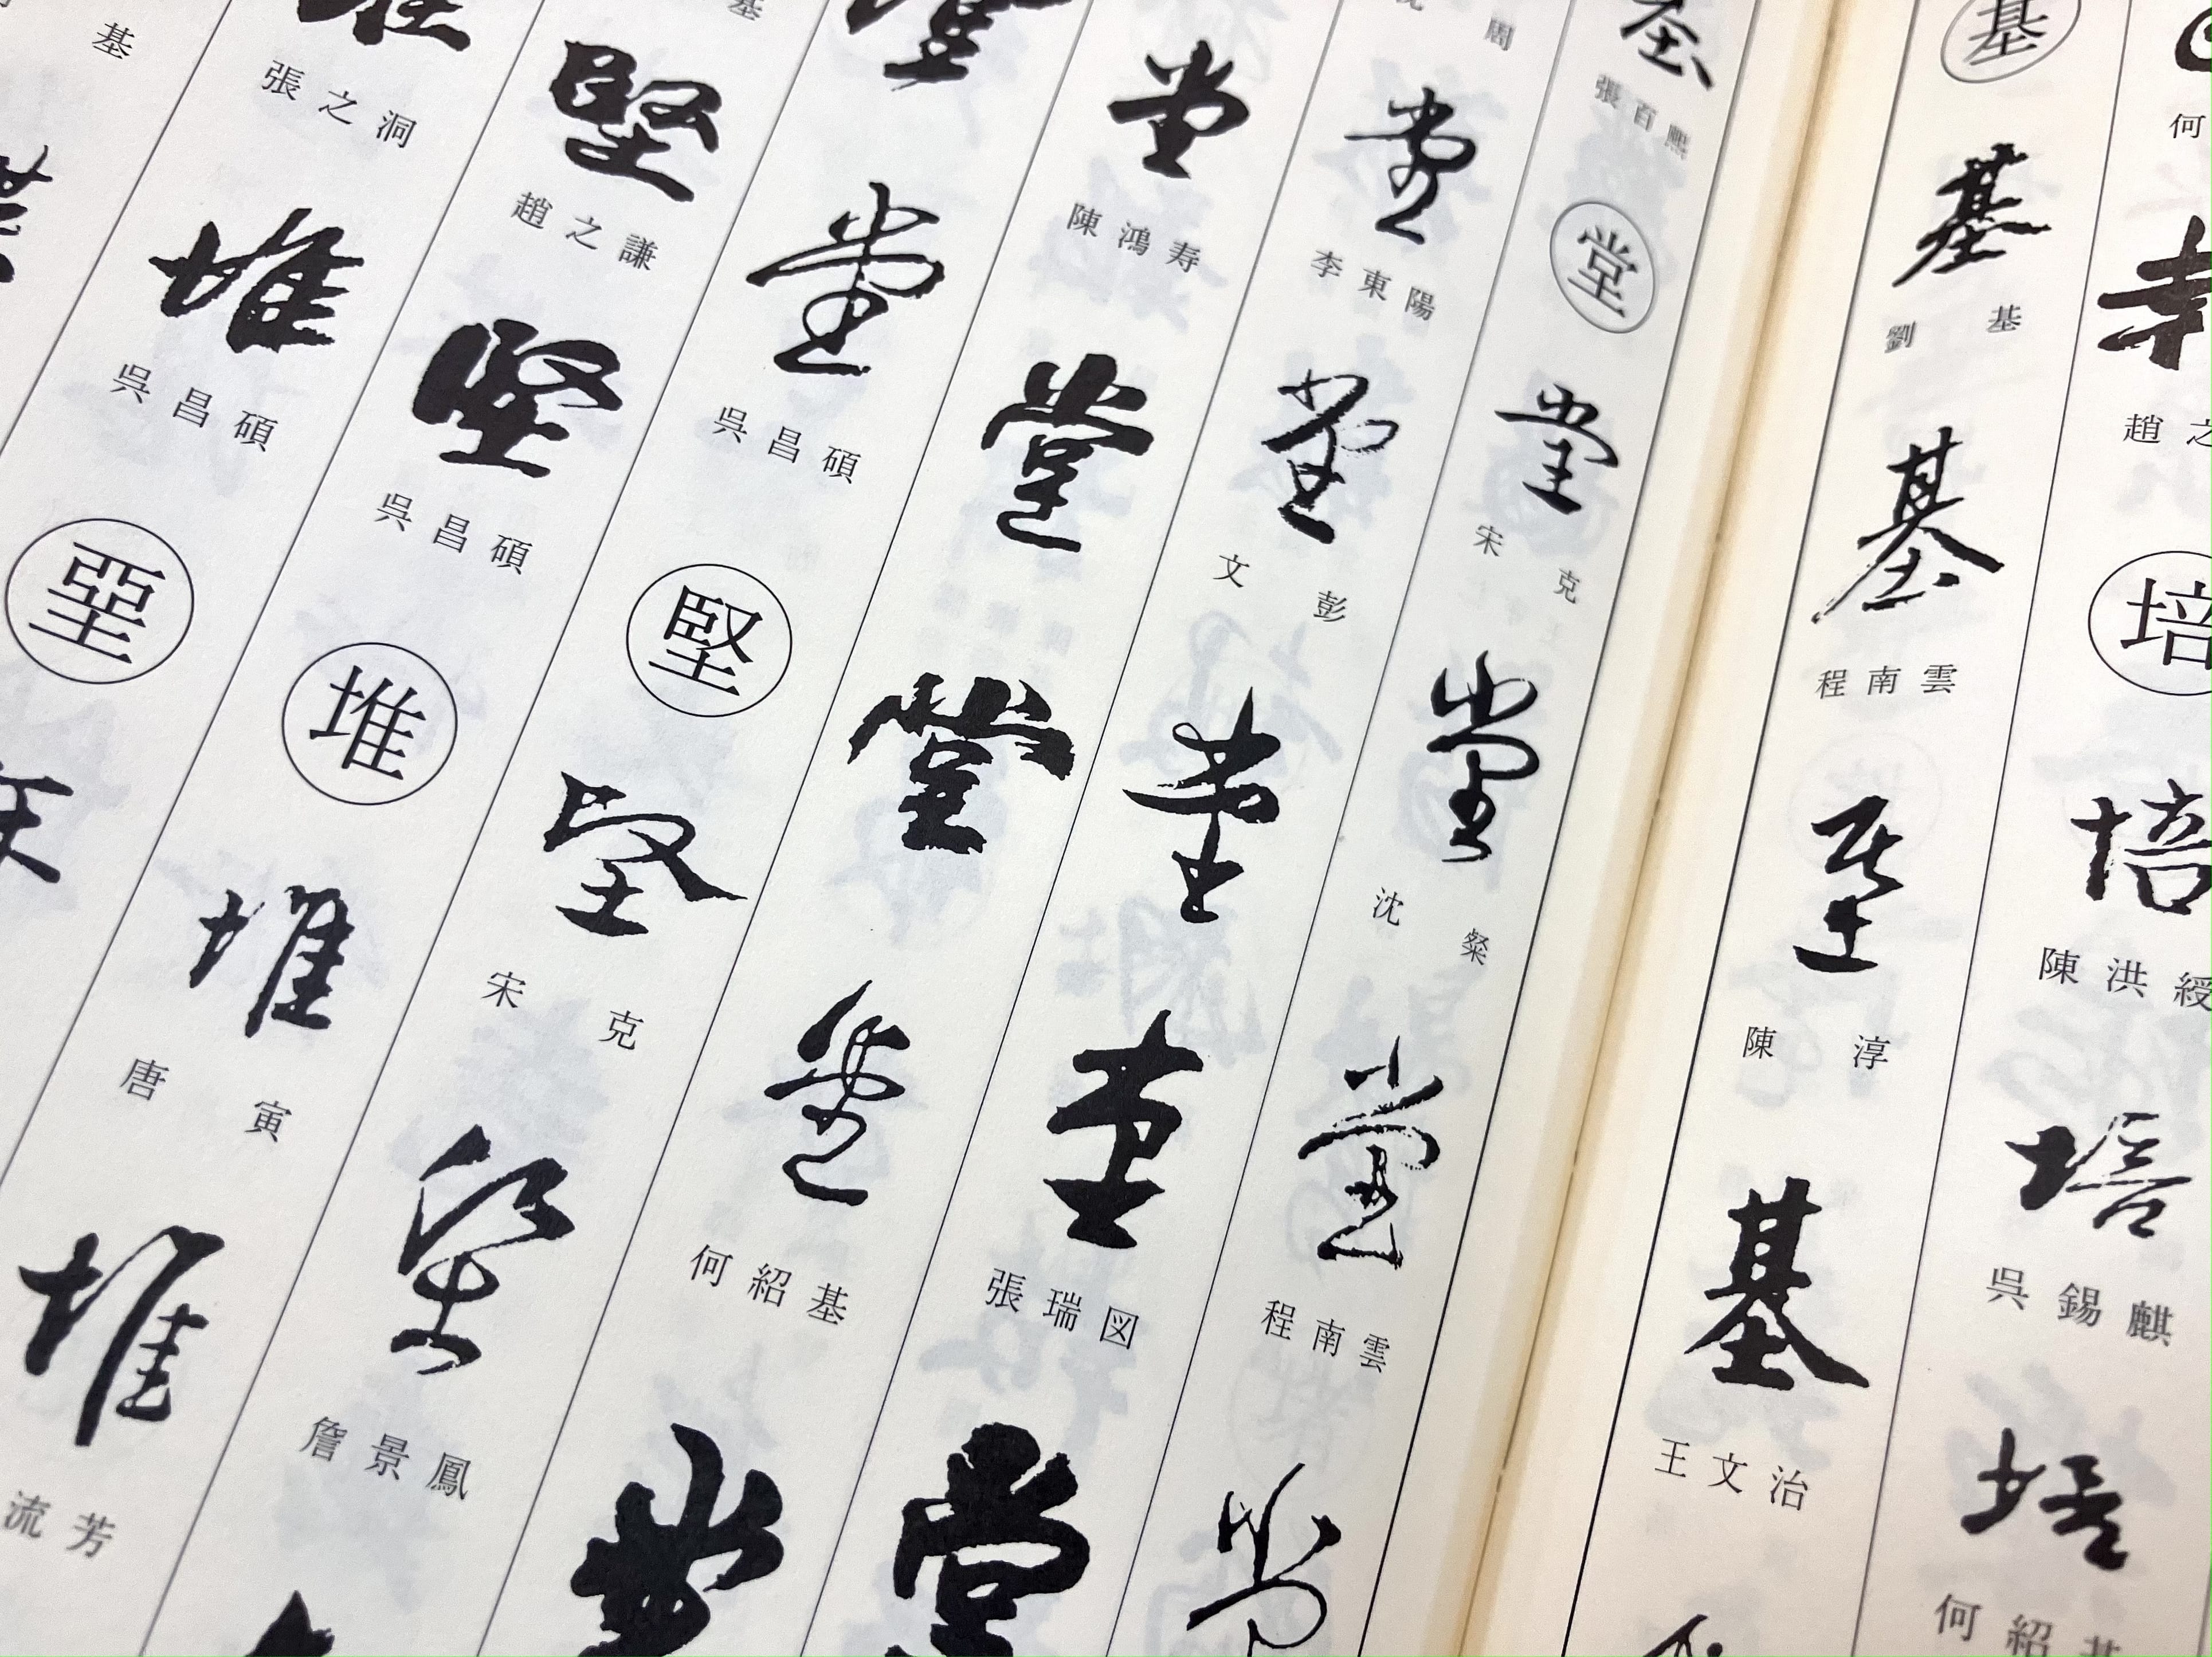 何
趙之
培
培
陳洪綬
培
吳錫麒
培
何紹基
基
基
劉基
基
程南雲
基
陳淳
基
王文治
基
張百熙
堂
堂
宋克
堂
沈粲
堂
程南雲
沈周
堂
李東陽
堂
文彭
堂
堂
張瑞図
堂
堂
陳鴻寿
堂
堂
堂
何紹基
堂
吳昌碩
堅
堅
宋克
堅
詹景鳳
基
堅
趙之謙
堅
吳昌碩
堆
堆
唐寅
堆
流芳
堆
張之洞
堆
吳昌碩
堊
基